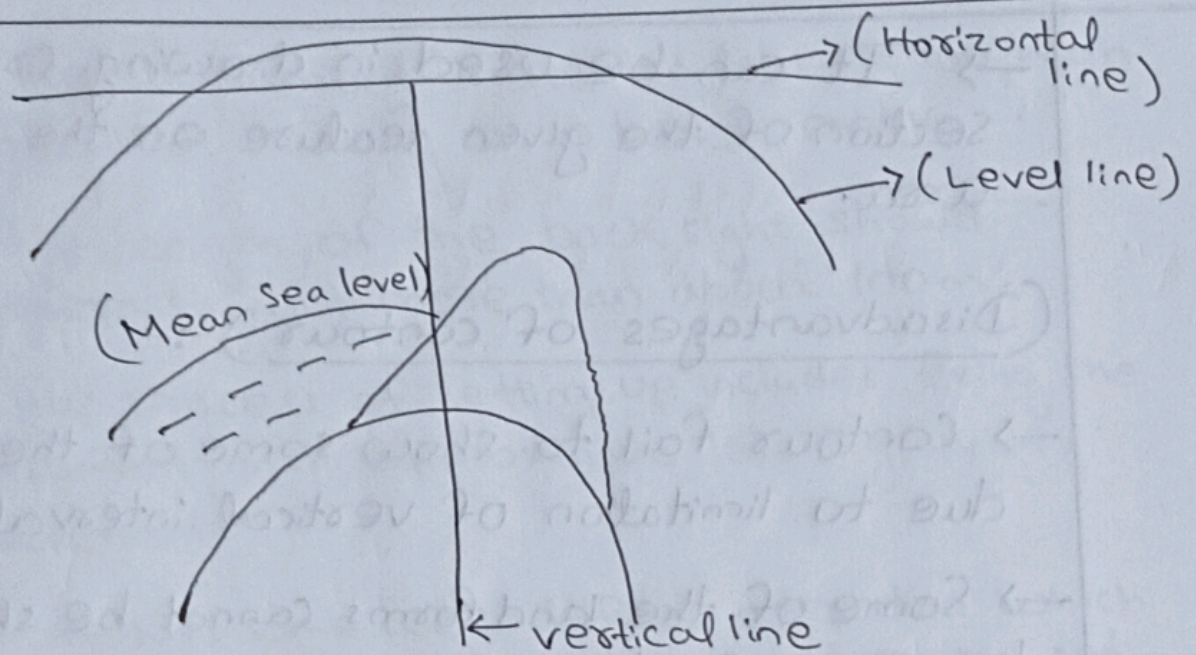 (Horizontal
line)
(Level line)
(Mean Sea level)
vertical line